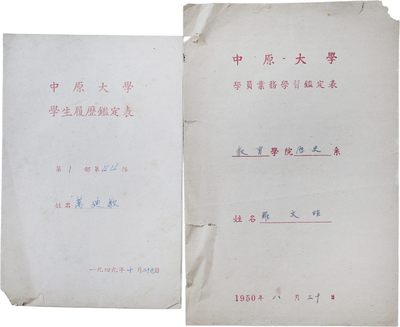 中原大學
學生履歷鑑定表
第1部第 隊
姓名 萬
一九四九年十月 日
中原大學
學員業務學習鑑定表
教育學院歷史系
姓名 羅文
1950年八月三十日